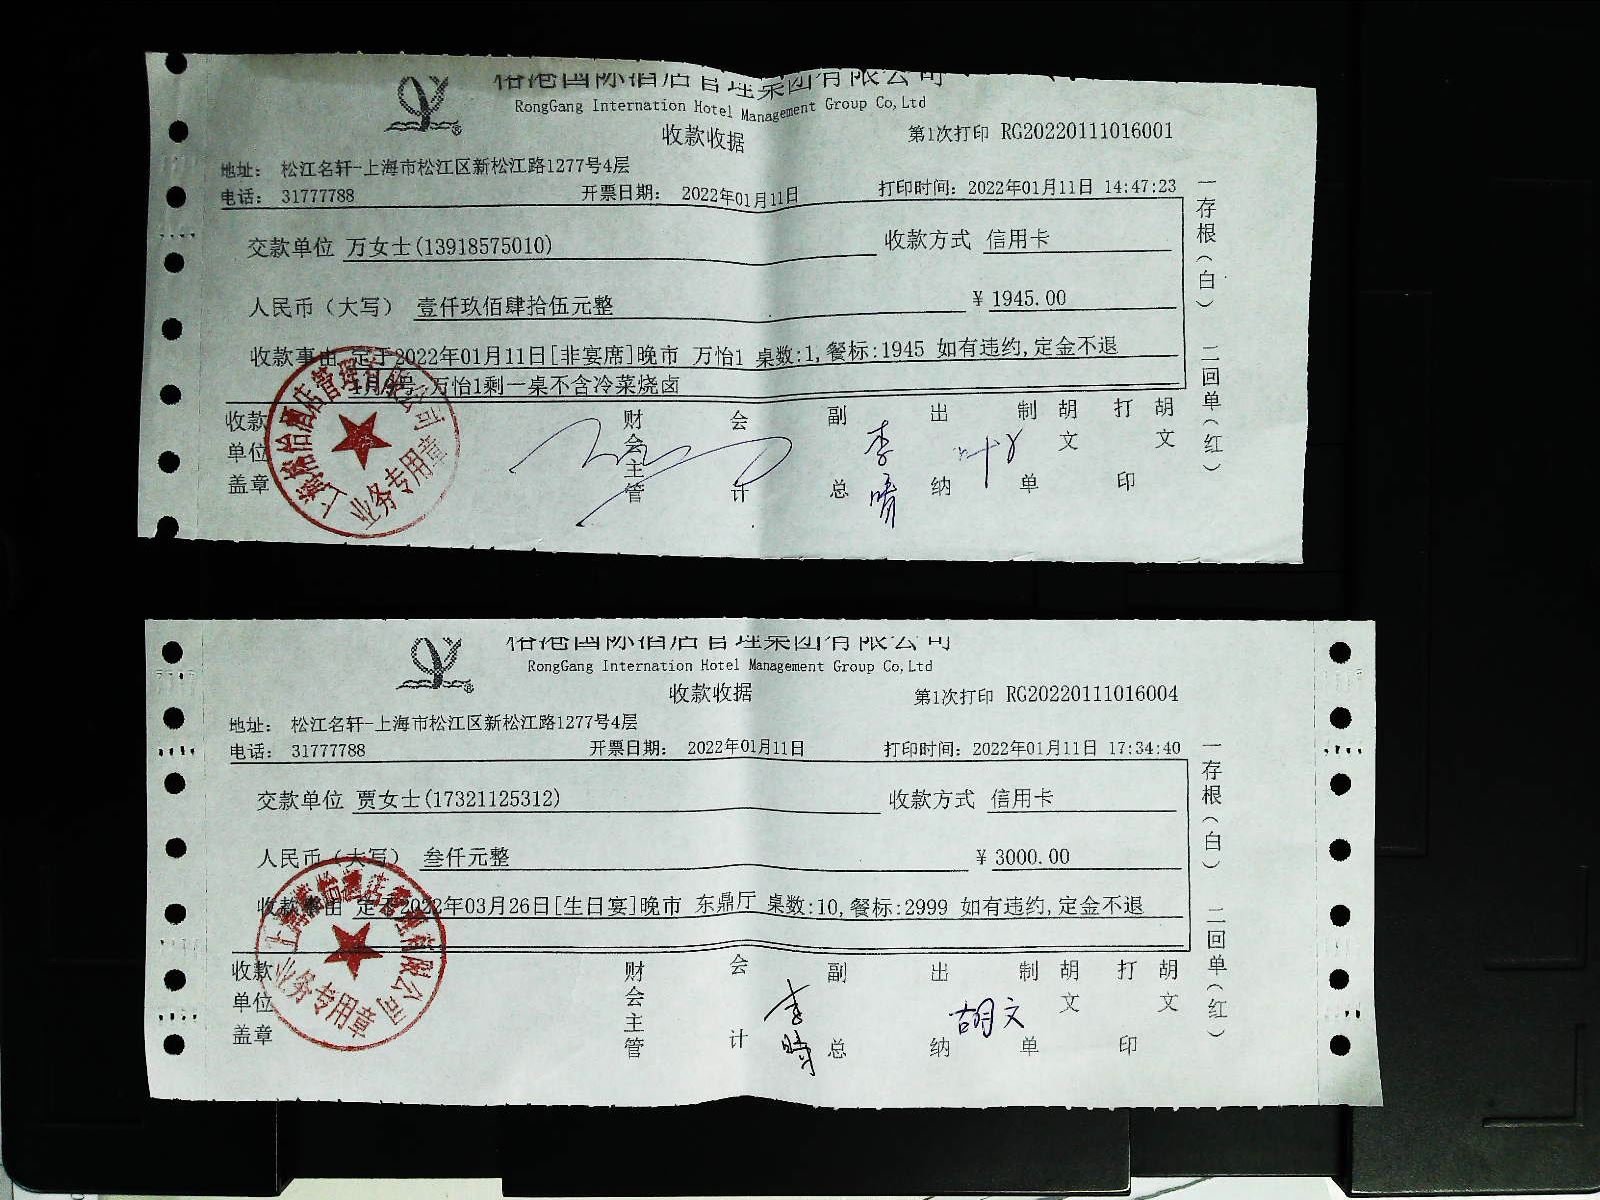 裕港国际酒店管理集团有限公司
RongGang Internation Hotel Management Group Co,Ltd
收款收据
第1次打印 RG20220111016001
地址： 松江名轩-上海市松江区新松江路1277号4层
电话： 31777788 开票日期： 2022年01月11日 打印时间：2022年01月11日 14:47:23
交款单位 万女士(13918575010) 收款方式 信用卡
人民币（大写） 壹仟玖佰肆拾伍元整 ￥ 1945.00
收款事由 定于2022年01月11日[非宴席]晚市 万怡1 桌数:1,餐标:1945 如有违约,定金不退
万怡1剩一桌不含冷菜烧卤
收款单位盖章 财会主管 会计 副总 李 出纳 叶 制单 胡文 打印 胡文
一存根（白） 二回单（红）
业务专用章
裕港国际酒店管理集团有限公司
RongGang Internation Hotel Management Group Co,Ltd
收款收据
第1次打印 RG20220111016004
地址： 松江名轩-上海市松江区新松江路1277号4层
电话： 31777788 开票日期： 2022年01月11日 打印时间：2022年01月11日 17:34:40
交款单位 贾女士(17321125312) 收款方式 信用卡
人民币（大写） 叁仟元整 ￥ 3000.00
收款事由 定于2022年03月26日[生日宴]晚市 东鼎厅 桌数:10,餐标:2999 如有违约,定金不退
收款单位盖章 财会主管 会计 李 副总 出纳 胡文 制单 胡文 打印 胡文
一存根（白） 二回单（红）
业务专用章